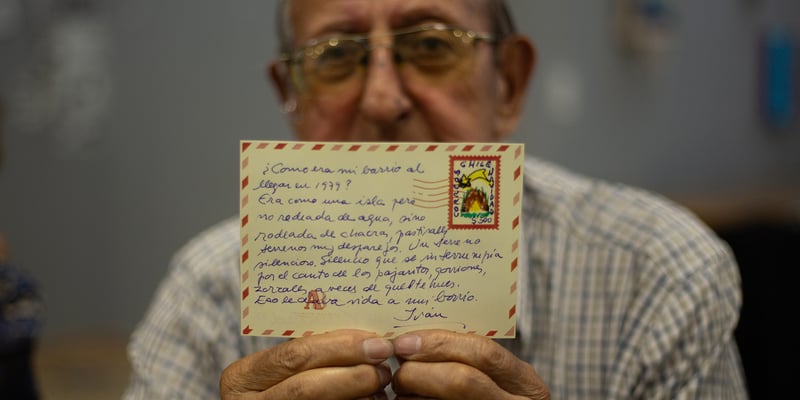 ¿Como era mi barrio al
llegar en 1979?
Era como una isla pero
no rodeada de agua, sino
rodeada de chacras, pastizales
terrenos muy desparejos. Un terreno
silencioso. Silencio que se interrumpia
por el canto de los pajaritos, gorriones,
zorzales, a veces de queltehues.
Eso le daba vida a mi barrio.
Iván
CORREOS CHILE
$500
A